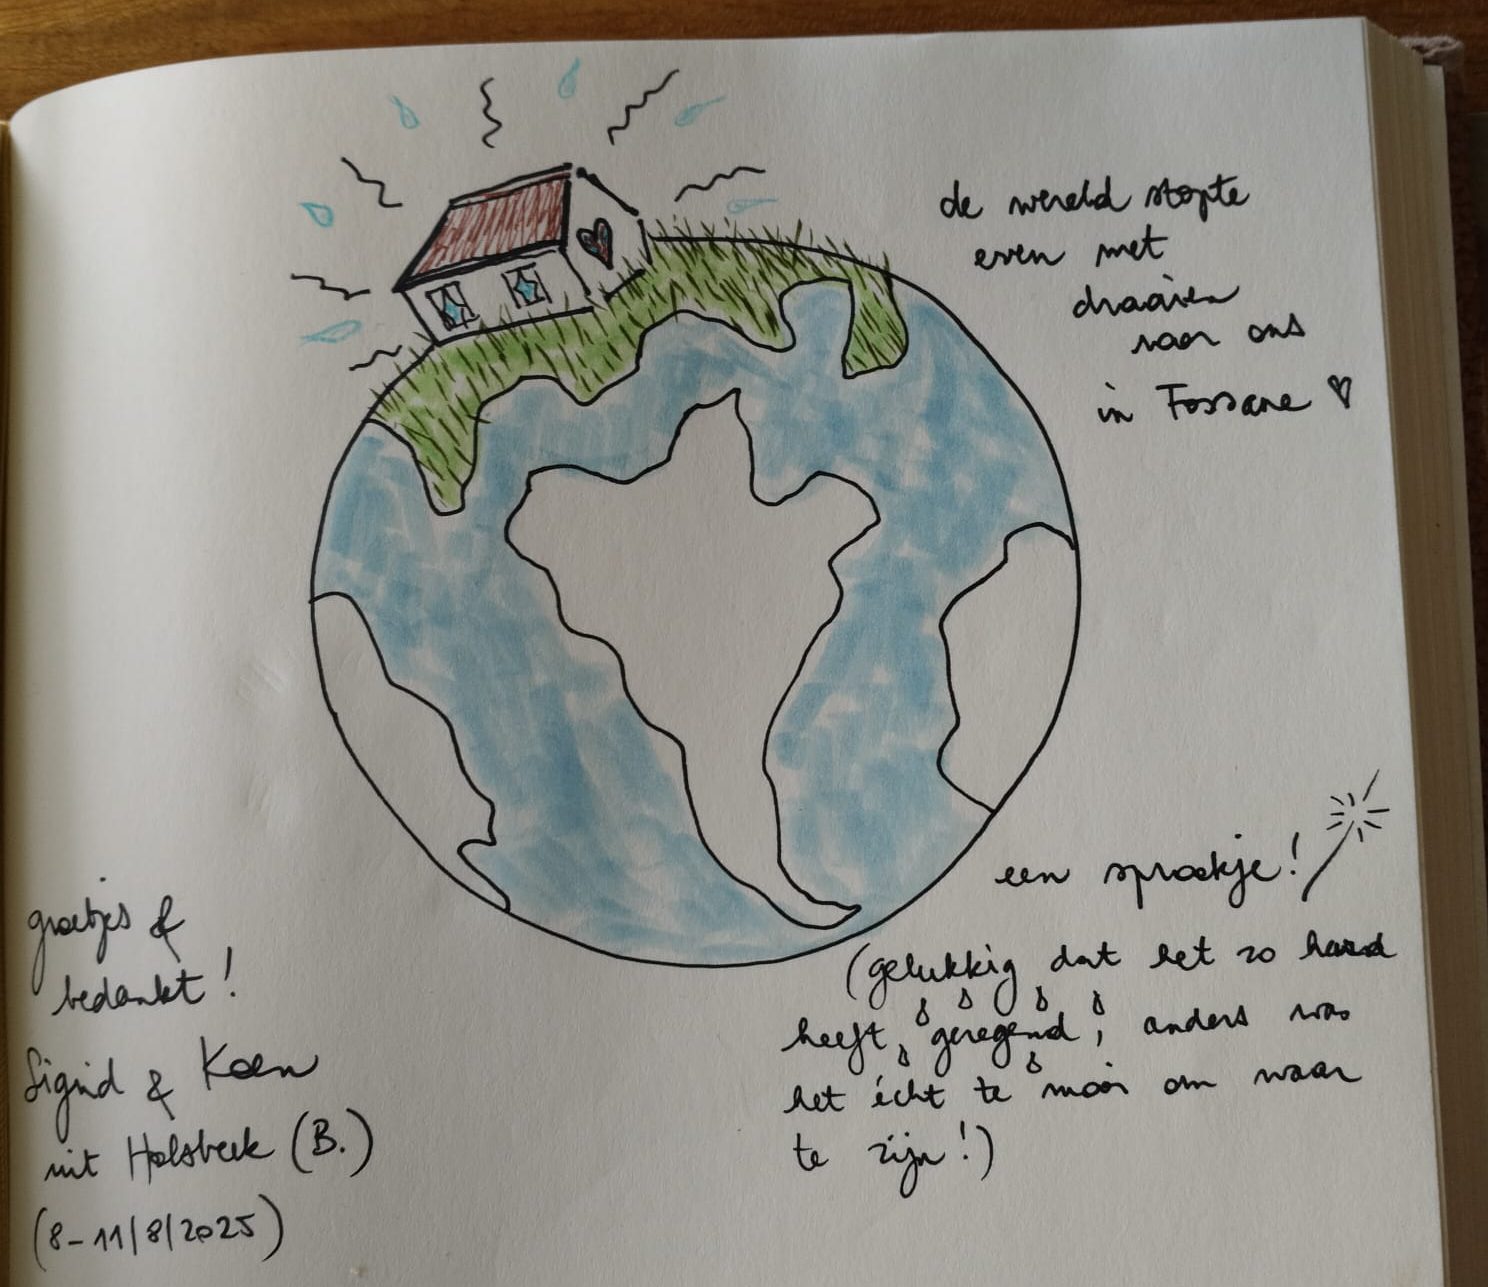 de wereld stopte
even met
draaien
voor ons
in Fossane ♡
een sprookje!
(gelukkig dat het zo hard
heeft geregend, anders was
het écht te mooi om waar
te zijn!)
groetjes &
bedankt!
Sigrid & Koen
uit Holsbeek (B.)
(8-11/8/2025)